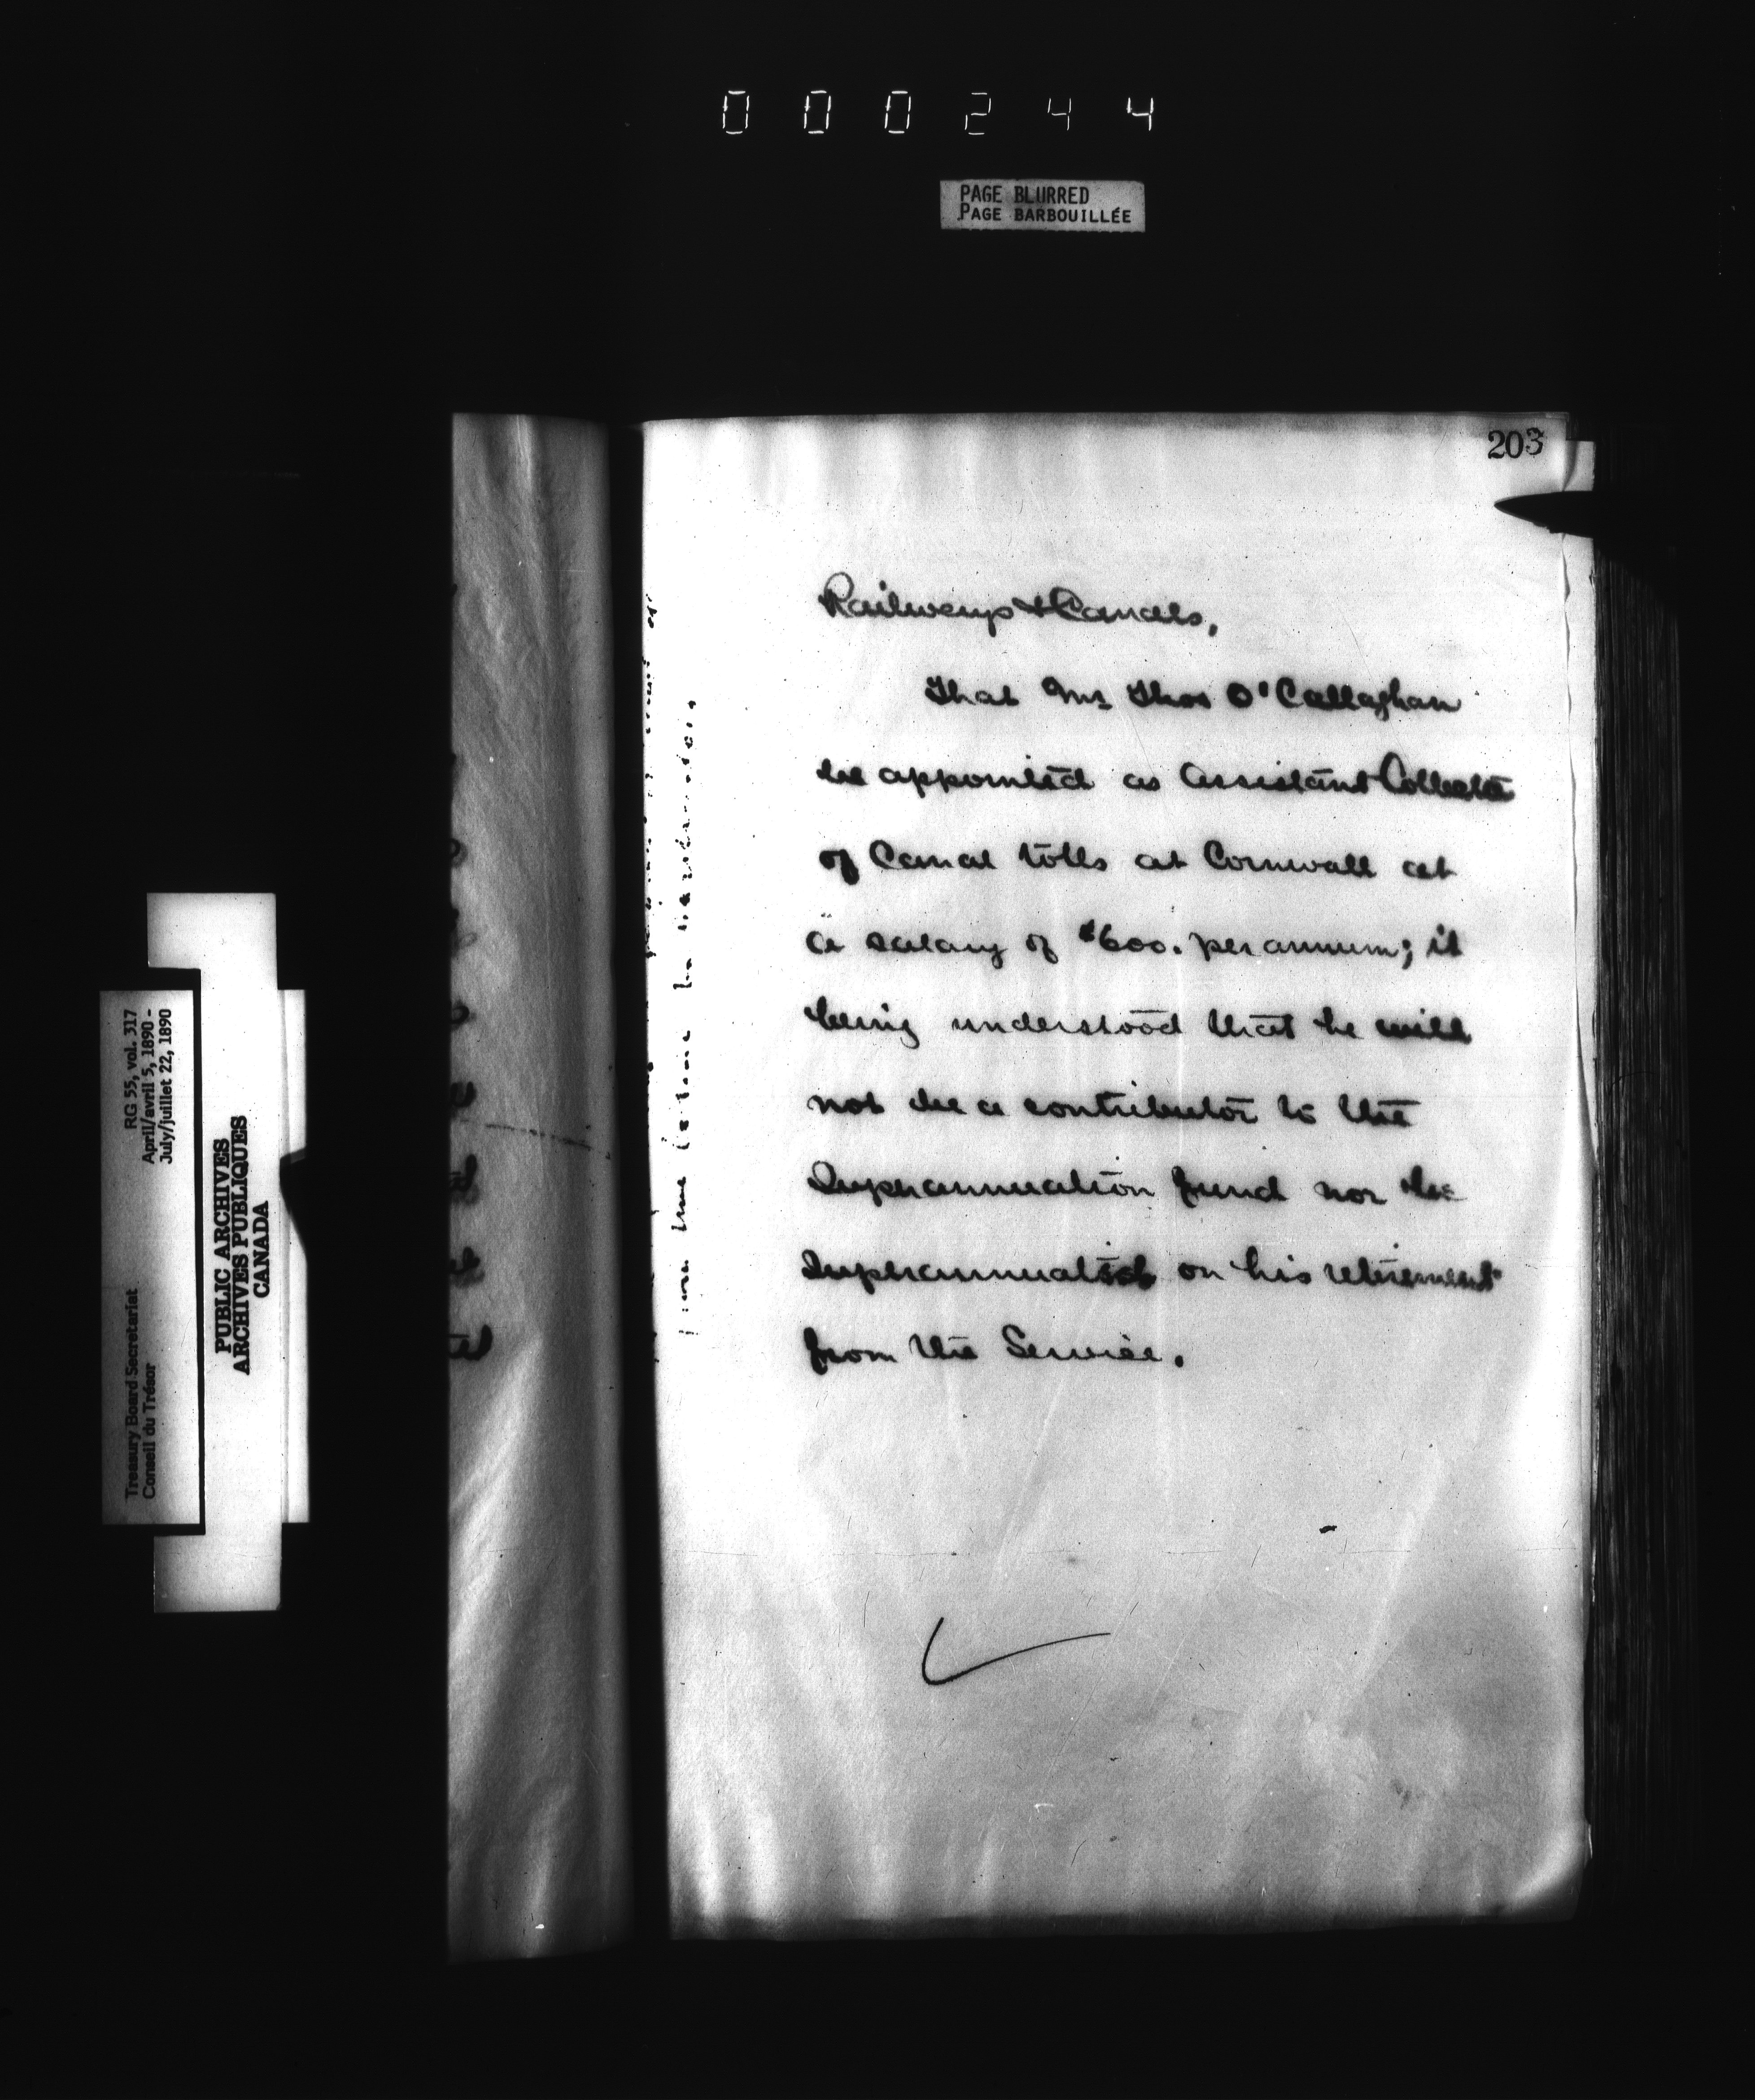 000244
PAGE BLURRED
PAGE BARBOUILLÉE
203
Railways & Canals,
That Mr Thos O'Callaghan
be appointed as Assistant Collector
of Canal tolls at Cornwall at
a salary of $600. per annum; it
being understood that he will
not be a contributor to the
Superannuation fund nor be
superannuated on his retirement
from the Service.
RG 55, vol. 317
April/avril 5, 1890 -
July/juillet 22, 1890
Treasury Board Secretariat
Conseil du Trésor
PUBLIC ARCHIVES
ARCHIVES PUBLIQUES
CANADA